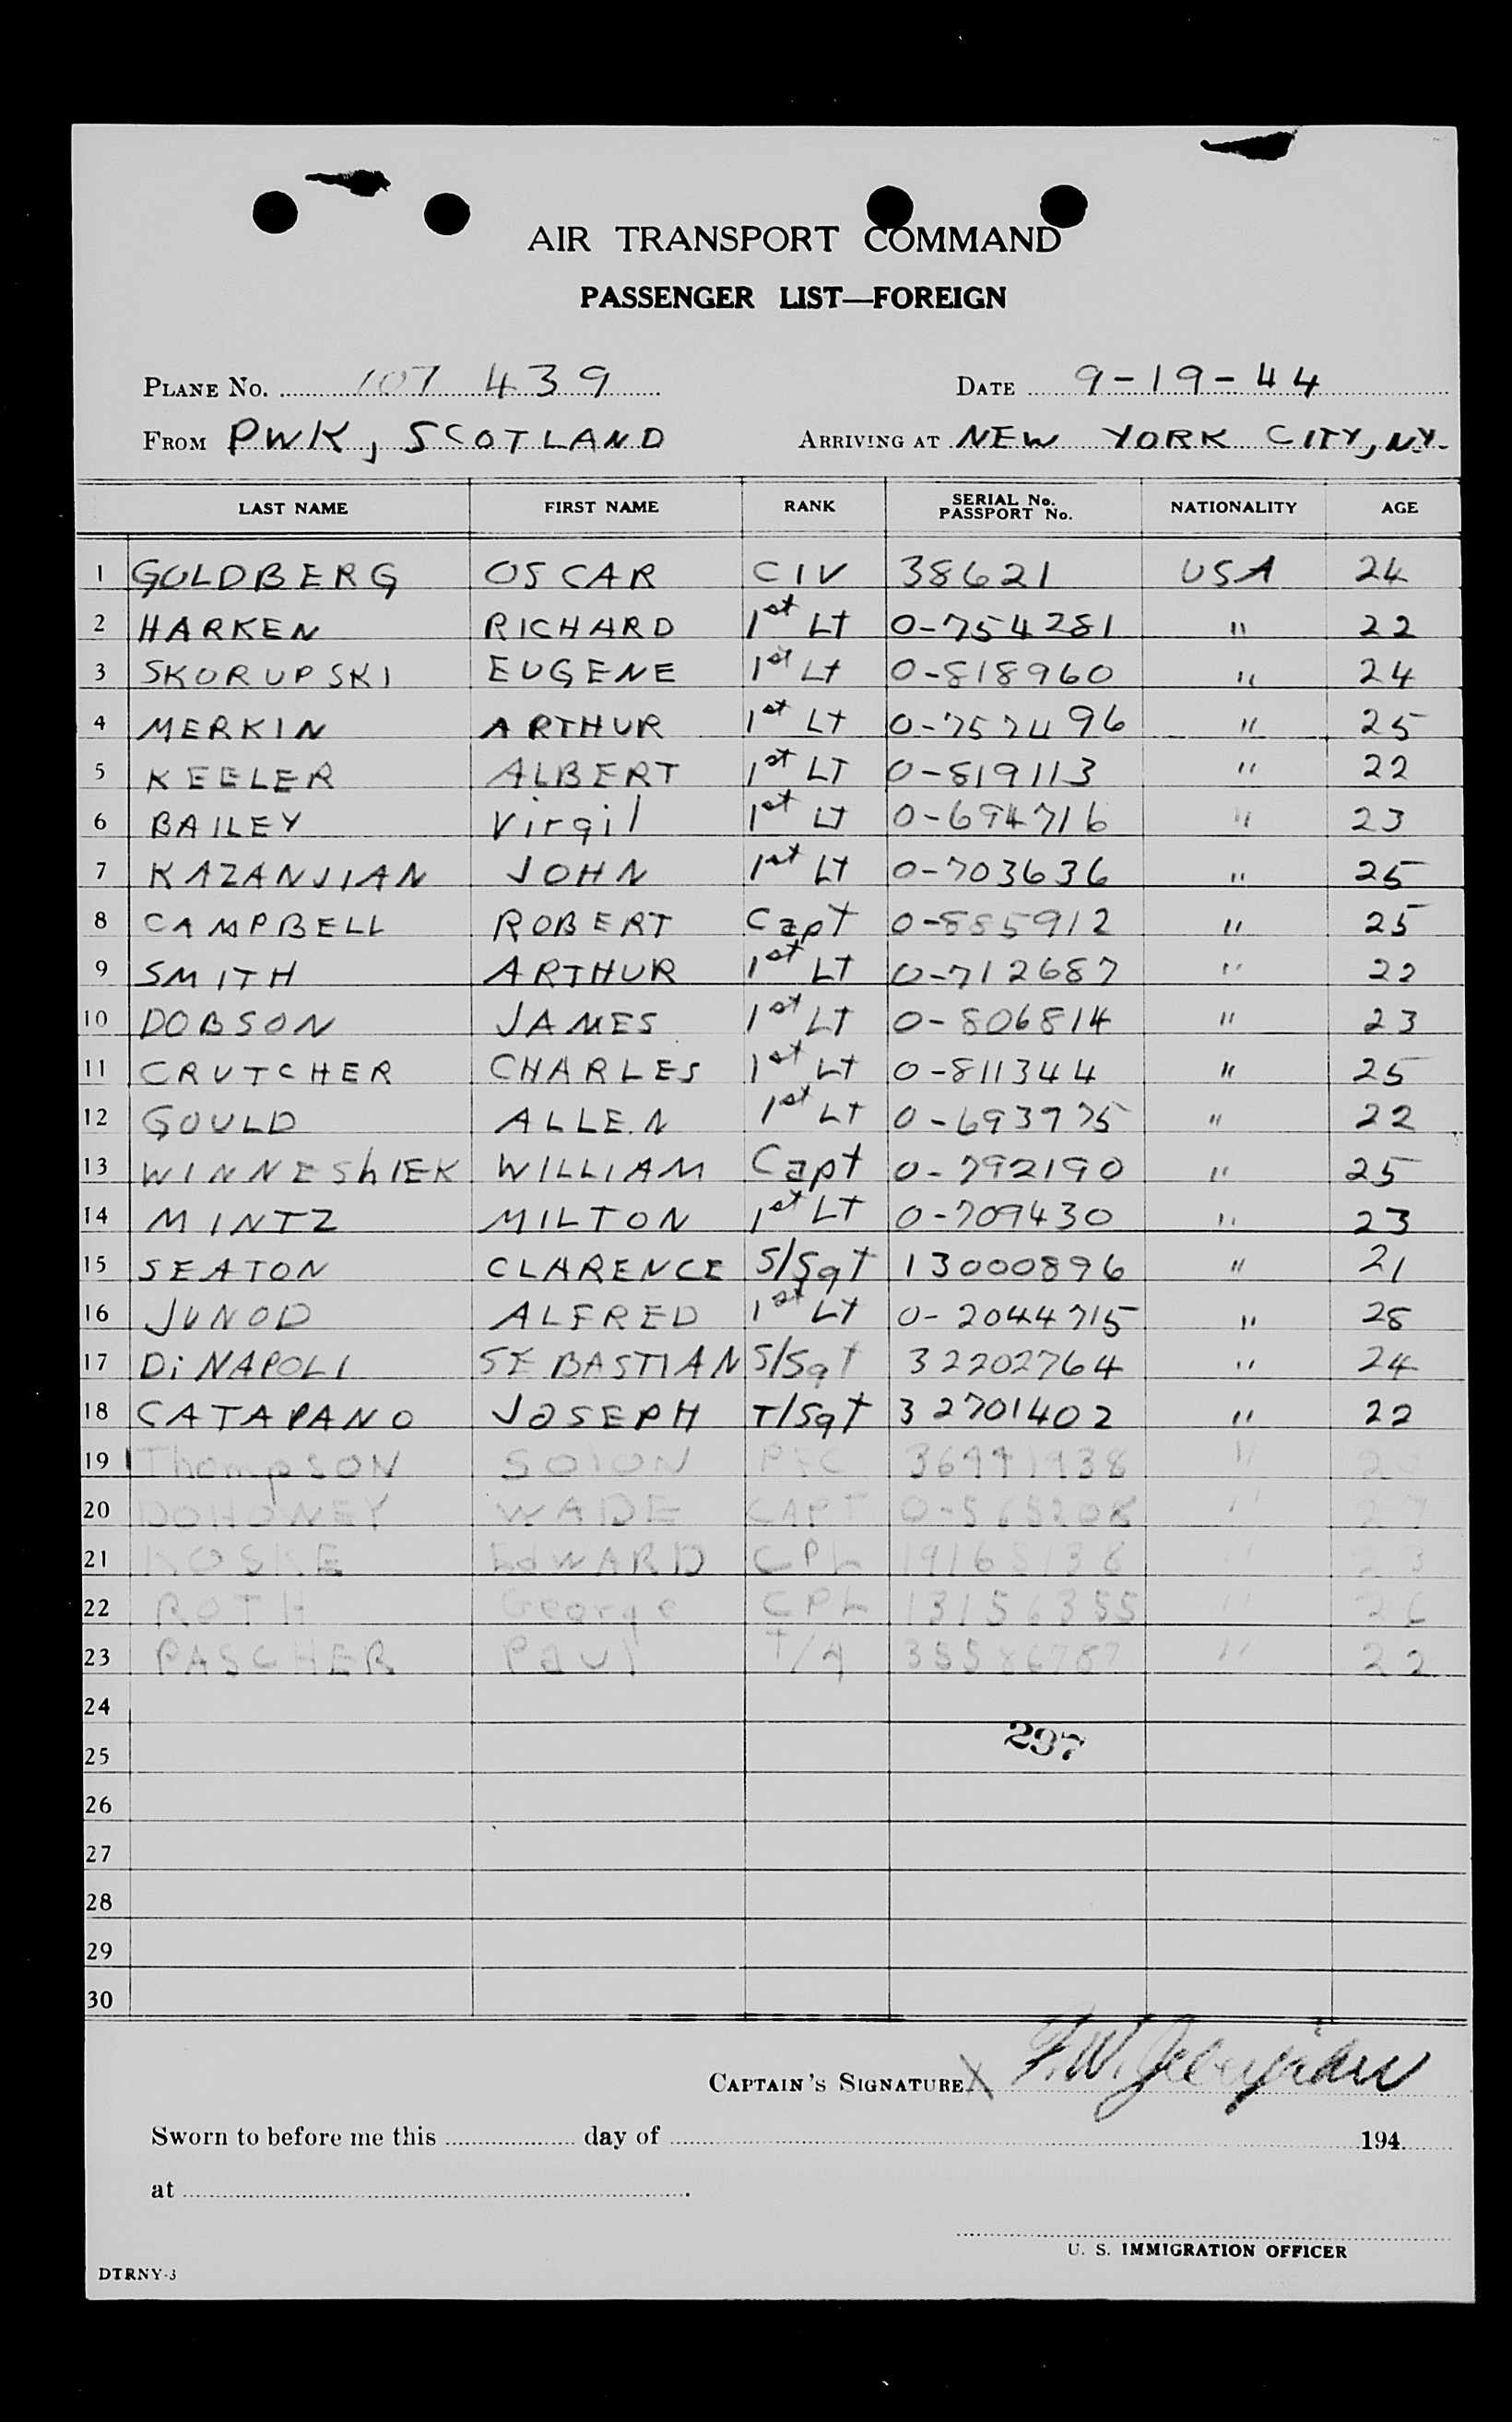 AIR TRANSPORT COMMAND
PASSENGER LIST—FOREIGN
PLANE No. 107 439 DATE 9-19-44
FROM PWK, SCOTLAND ARRIVING AT NEW YORK CITY, NY.
LAST NAME FIRST NAME RANK SERIAL No. PASSPORT No. NATIONALITY AGE
1 GOLDBERG OSCAR CIV 38621 USA 24
2 HARKEN RICHARD 1st Lt 0-754281 " 22
3 SKORUPSKI EUGENE 1st Lt 0-818960 " 24
4 MERKIN ARTHUR 1st Lt 0-757496 " 25
5 KEELER ALBERT 1st LT 0-819113 " 22
6 BAILEY Virgil 1st LT 0-694716 " 23
7 KAZANJIAN JOHN 1st LT 0-703636 " 25
8 CAMPBELL ROBERT Capt 0-885912 " 25
9 SMITH ARTHUR 1st LT 0-712687 " 22
10 DOBSON JAMES 1st LT 0-806814 " 23
11 CRUTCHER CHARLES 1st LT 0-811344 " 25
12 GOULD ALLEN 1st LT 0-693775 " 22
13 WINNEShIEK WILLIAM Capt 0-792190 " 25
14 MINTZ MILTON 1st LT 0-709430 " 23
15 SEATON CLARENCE S/Sgt 13000896 " 21
16 JUNOD ALFRED 1st LT 0-2044715 " 28
17 DiNAPOLI SEBASTIAN S/Sgt 32202764 " 24
18 CATAPANO JOSEPH T/Sgt 32701402 " 22
19 ThompSON SOlON PFC "
20 DOHONEY WADE CAPT " 27
21 KOSKE EdWARD CPL " 23
22 ROTH George CPL 13156355 " 26
23 PASCHER Paul T/4 " 22
24
237
25
26
27
28
29
30
CAPTAIN'S SIGNATURE X F.W.
Sworn to before me this day of 194
at .
U. S. IMMIGRATION OFFICER
DTRNY-3